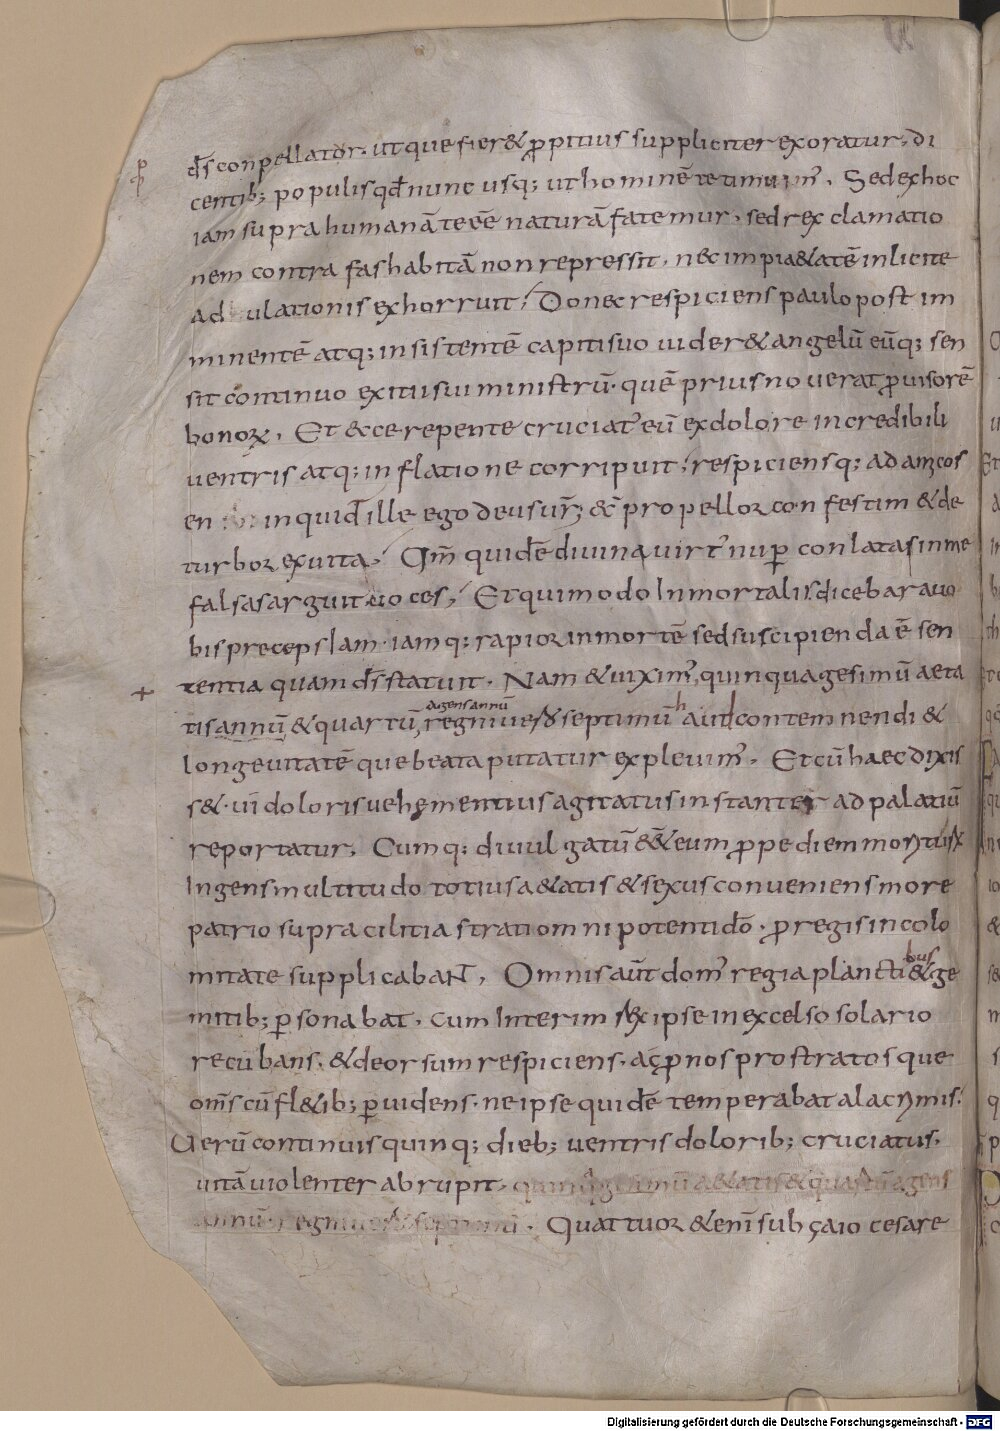 d̄s conpellator. utque fier& ꝓpitius suppliciter exoratur. di
centib; populis qđ nunc usq; ut hominē te timuim᾽. Sed ex hoc
iam supra humanā te eē̄ naturā fatemur. sed rex clamatio
nem contra fas habitā non repressit. nec impia&atē inlicite
ad ulationis exhorruit. Donec respiciens paulo post im
minentē atq; insistentē capiti suo uider& angelū eūq; sen
sit continuo exitii sui ministrū. quē prius nouerat ꝓuisorē
bonoꝝ. Et &ce repente cruciat᾽ eū ex dolore incredibili
uentris atq; inflatione corripuit. respiciensq; ad amicos
en inquid ille ego deus ur̄; &c̄ propellor confestim & de
turbor ex uita. Qm̄ quidē diuina uirt᾽ nuꝑ conlatas in me
falsas arguit uoces. Et qui modo Inmortalis dicebar a uo
bis preceps Iam iamq; rapior in mortē sed suscipienda ē sen
+ tentia quam d̄s statuit. Nam & uixim᾽ quinquagesimū aeta
agens annū
tis annū & quartū, regni uero septimū haud contemnendi &
longeuitatē que beata putatur expleuim᾽. Et cū haec dixis
s&. ui doloris uehementius agitatus instanter ad palatiū
reportatur. Cumq; diuulgatū eē̄& eum ꝓpediem moriturū
Ingens multitudo totius a&atis & sexus conueniens more
patrio supra cilitia strati omnipotenti dō. ꝓ regis incolo
mitate supplicabaNT. Omnis aūt dom᾽ regia planctibus & ge
mitib; ꝑsonabat. cum Interim rex ipse in excelso solario
recūbans. & deorsum respiciens. ac ꝓnos prostratosque
om̄s cū fl&ib; ꝑuidens. ne ipse quidē temperabat a lacrymis.
Uerū continuis quinq; dieb; uentris dolorib; cruciatus.
uitā uiolenter abrupit. quinquagesimū a&atis & quartū agens
annū. regni uero septimū. Quattuor &enī sub gaio cesare